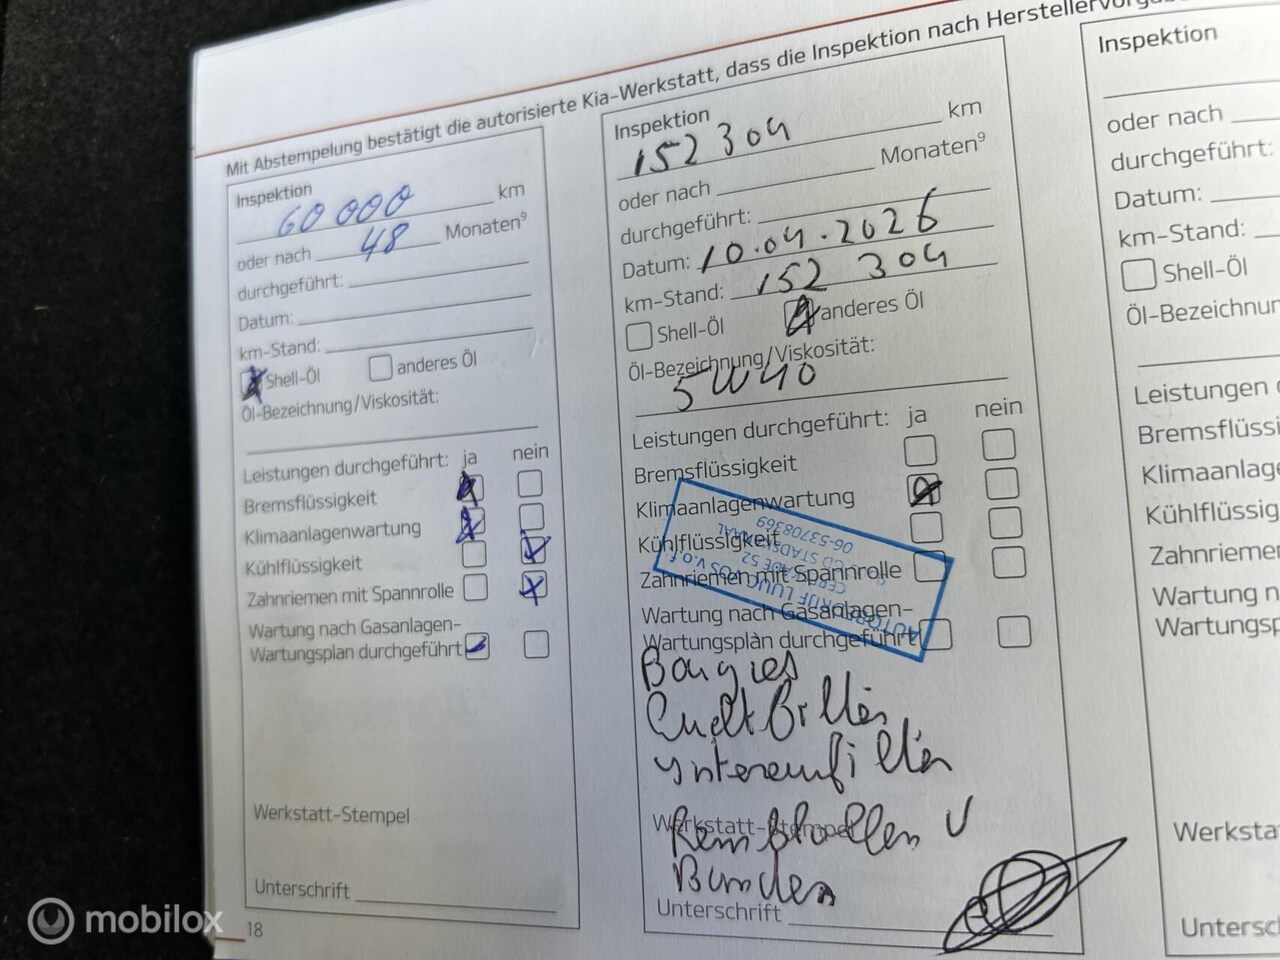 Mit Abstempelung bestätigt die autorisierte Kia-Werkstatt, dass die Inspektion nach Herstellervorgabe
Inspektion
60 000 km
oder nach 48 Monaten⁹
durchgeführt:
Datum:
km-Stand:
Shell-Öl anderes Öl
Öl-Bezeichnung/Viskosität:
Leistungen durchgeführt: ja nein
Bremsflüssigkeit
Klimaanlagenwartung
Kühlflüssigkeit
Zahnriemen mit Spannrolle
Wartung nach Gasanlagen-
Wartungsplan durchgeführt
Werkstatt-Stempel
Unterschrift
18
Inspektion
152 304 km
oder nach Monaten⁹
durchgeführt:
Datum: 10.04.2026
km-Stand: 152 304
Shell-Öl anderes Öl
Öl-Bezeichnung/Viskosität:
5W40
Leistungen durchgeführt: ja nein
Bremsflüssigkeit
Klimaanlagenwartung
Kühlflüssigkeit
Zahnriemen mit Spannrolle
Wartung nach Gasanlagen-
Wartungsplan durchgeführt
AUTOBEDRIJF V.o.f.
52
CD STADSKANAAL
06-53708369
Bougies
Luchtfilter
Interieurfilter
Werkstatt-Stempel
Remstoffen
Banden
Unterschrift
Inspektion
oder nach
durchgeführt:
Datum:
km-Stand:
Shell-Öl
Öl-Bezeichnun
Leistungen
Bremsflüssi
Klimaanlage
Kühlflüssig
Zahnriemen
Wartung n
Wartungsp
Werksta
Untersc
mobilox